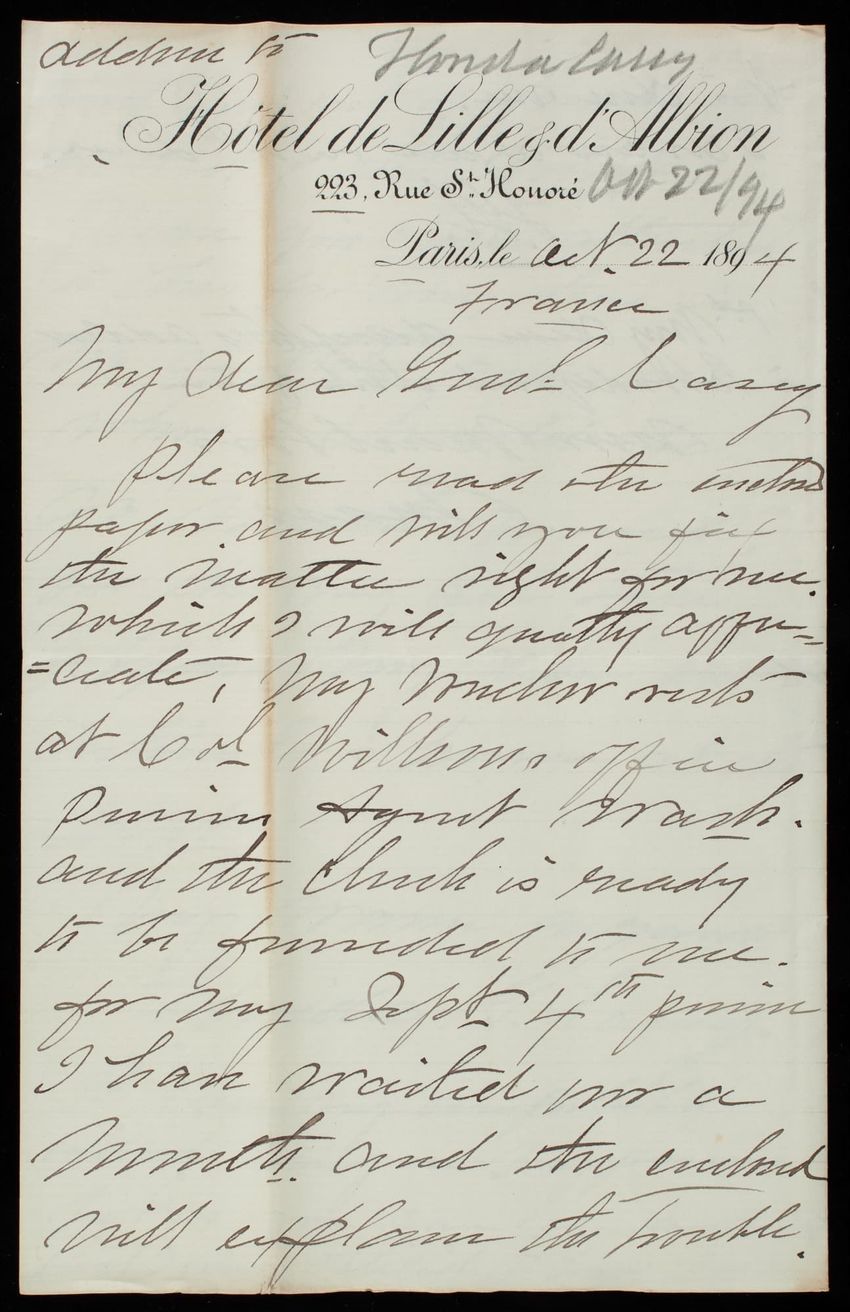 address to
Hôtel de Lille & d'Albion
223, Rue St. Honoré Oct 22/94
Paris, le Oct. 22 1894
France
My dear Genl. Casey
please read the enclosed
paper and will you fix
the matter right for me.
which I will greatly appre-
=ciate, My voucher rests
at Col Willsons office
pension Agent Wash.
and the Check is ready
to be forwarded to me.
for my Sept 4th pension
I have waited over a
month. and the enclosed
will explain the trouble.